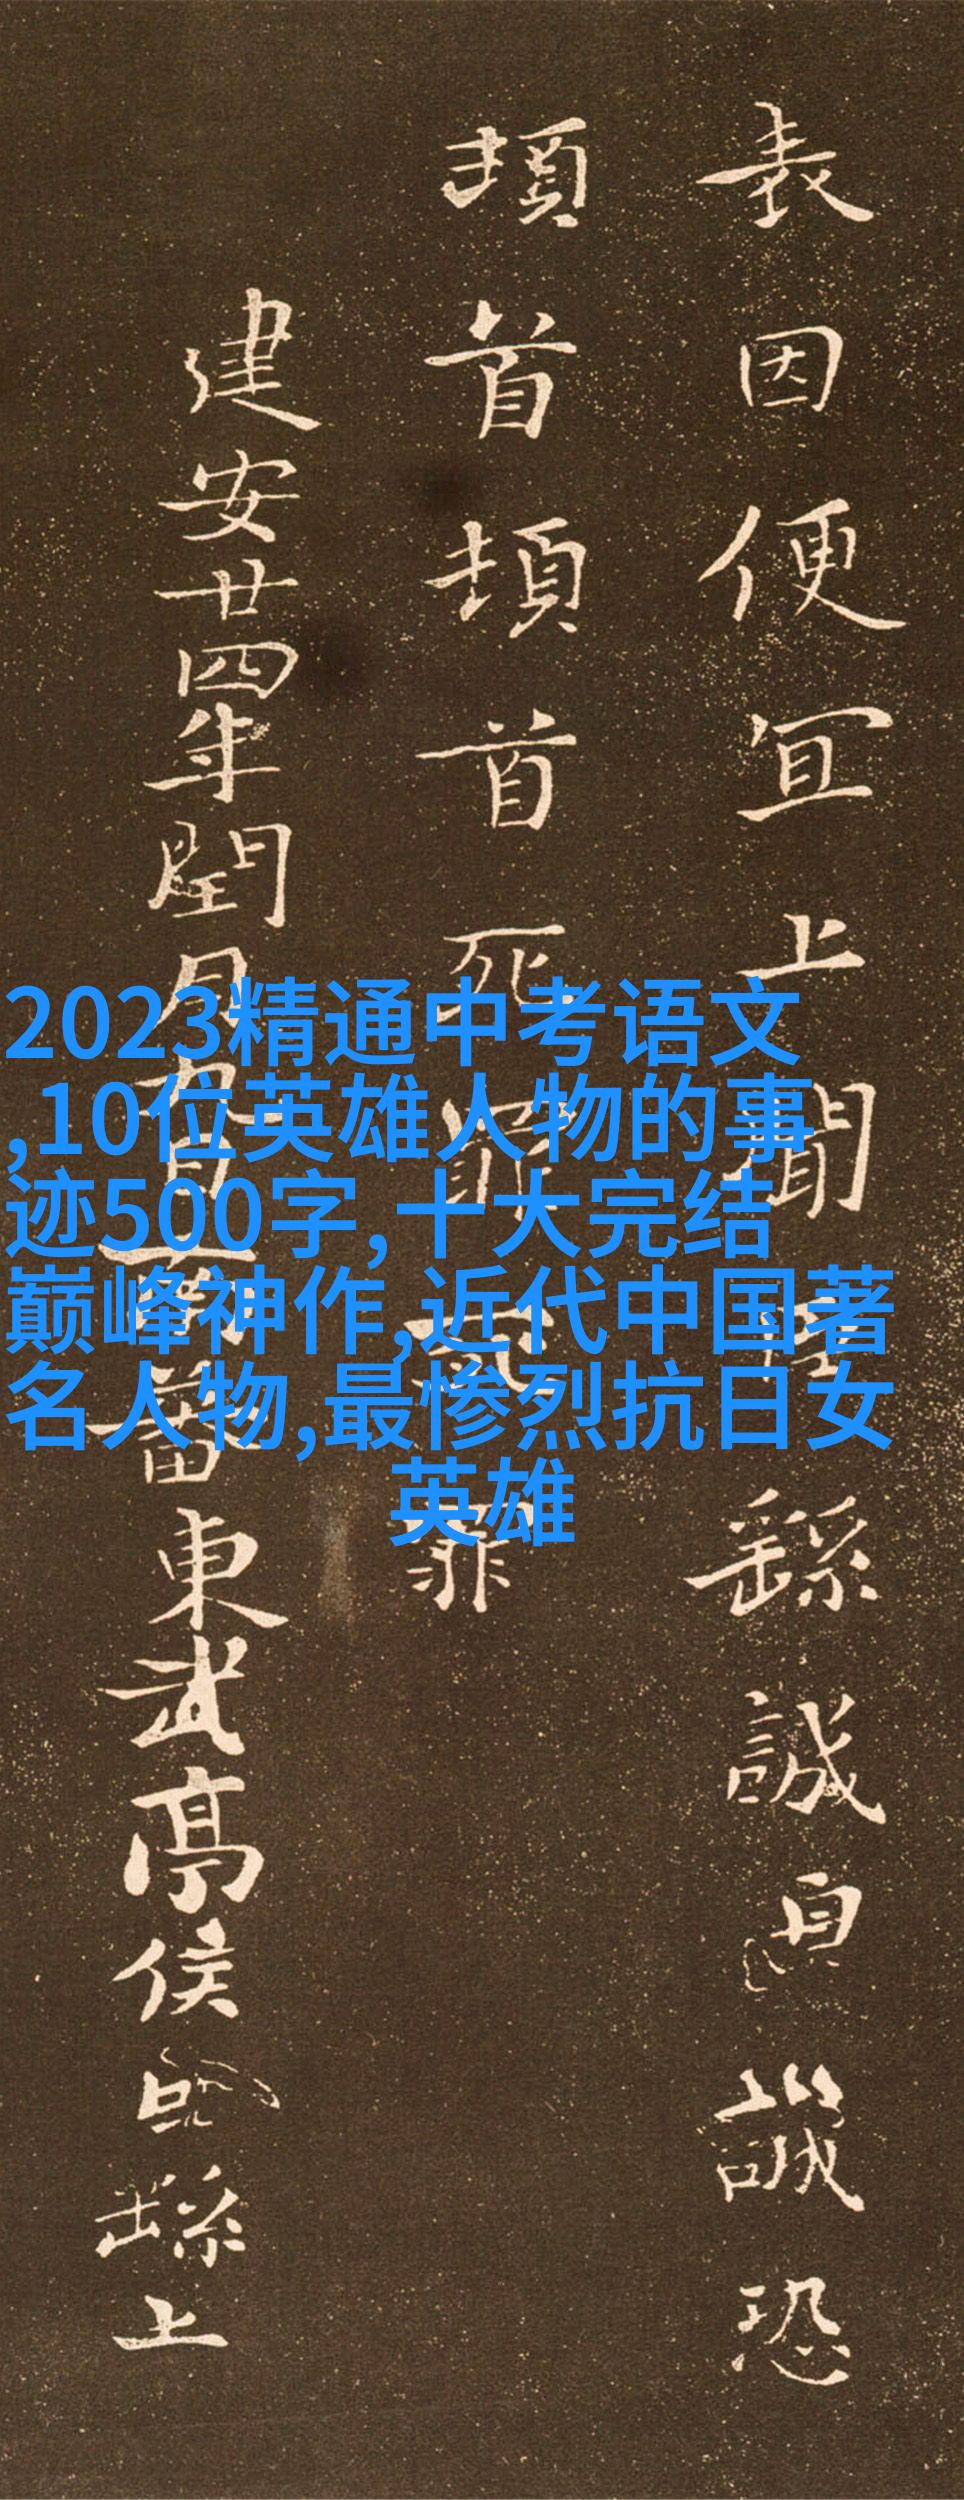 表因便宜上聞臣繇誠皇誠恐
頓首頓首死罪死罪
建安廿四年閏月九日南蕃東武亭侯臣繇上
2023精通中考语文
,10位英雄人物的事
迹500字, 十大完结
巅峰神作,近代中国著
名人物,最惨烈抗日女
英雄